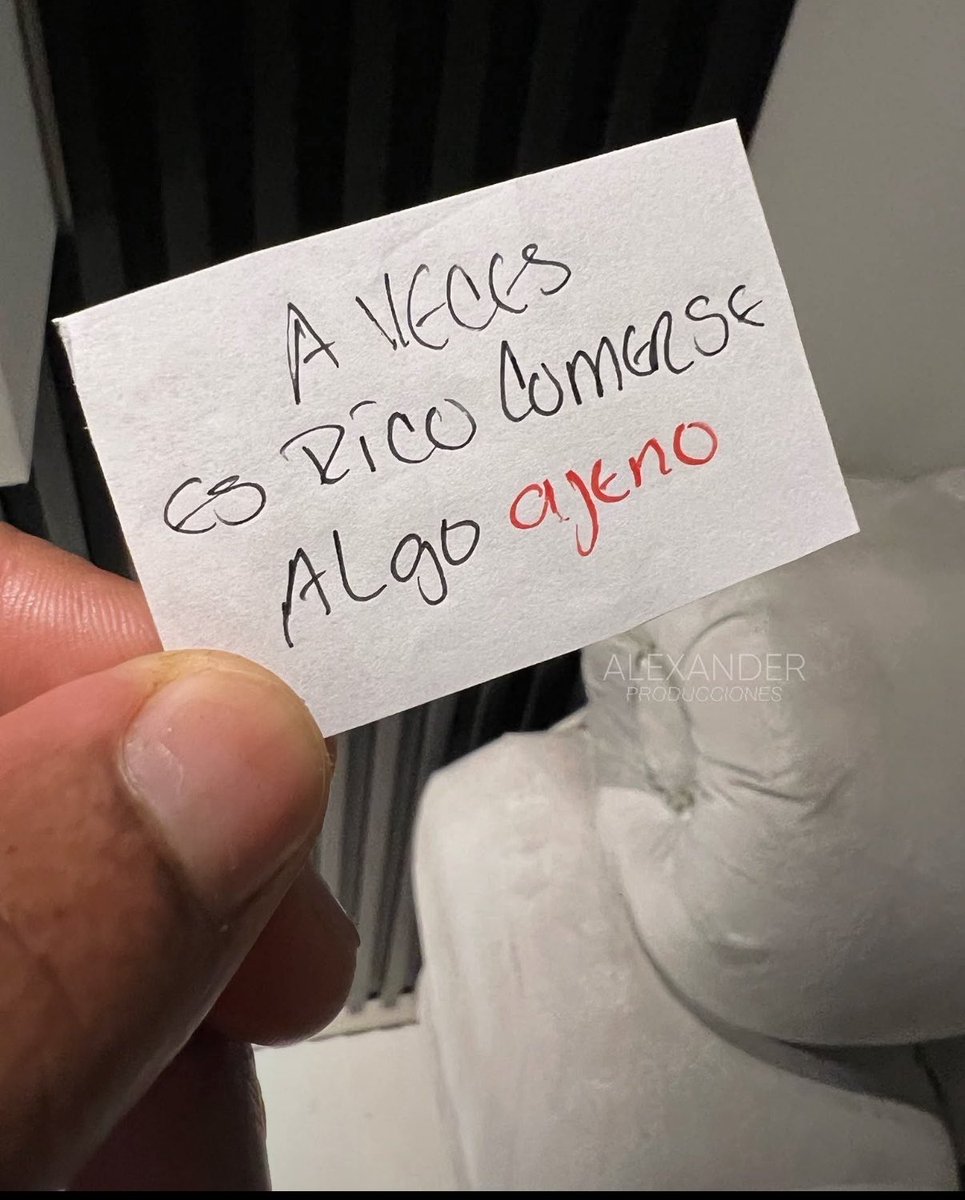 A VECES
ES RICO COMERSE
ALgO ajENO
ALEXANDER
PRODUCCIONES